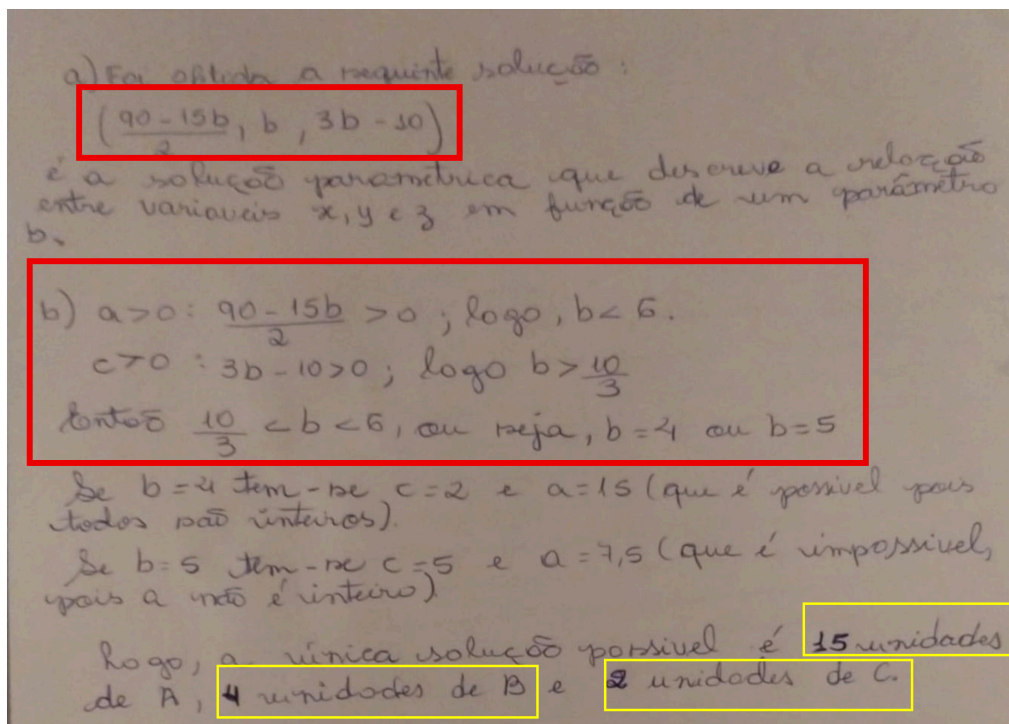 a) Foi obtida a seguinte solução:
(90-15b/2, b, 3b-10)
é a solução paramétrica que descreve a relação
entre variaveis x, y e z em função de um parâmetro
b.
b) a>0: 90-15b/2 >0; logo, b<6.
c>0: 3b-10>0; logo b>10/3
Então 10/3 <b<6, ou seja, b=4 ou b=5
Se b=4 tem-se c=2 e a=15 (que é possivel pois
todos são inteiros).
Se b=5 tem-se c=5 e a=7,5 (que é impossivel,
pois a não é inteiro)
Logo, a única solução possivel é 15 unidades
de A, 4 unidades de B e 2 unidades de C.